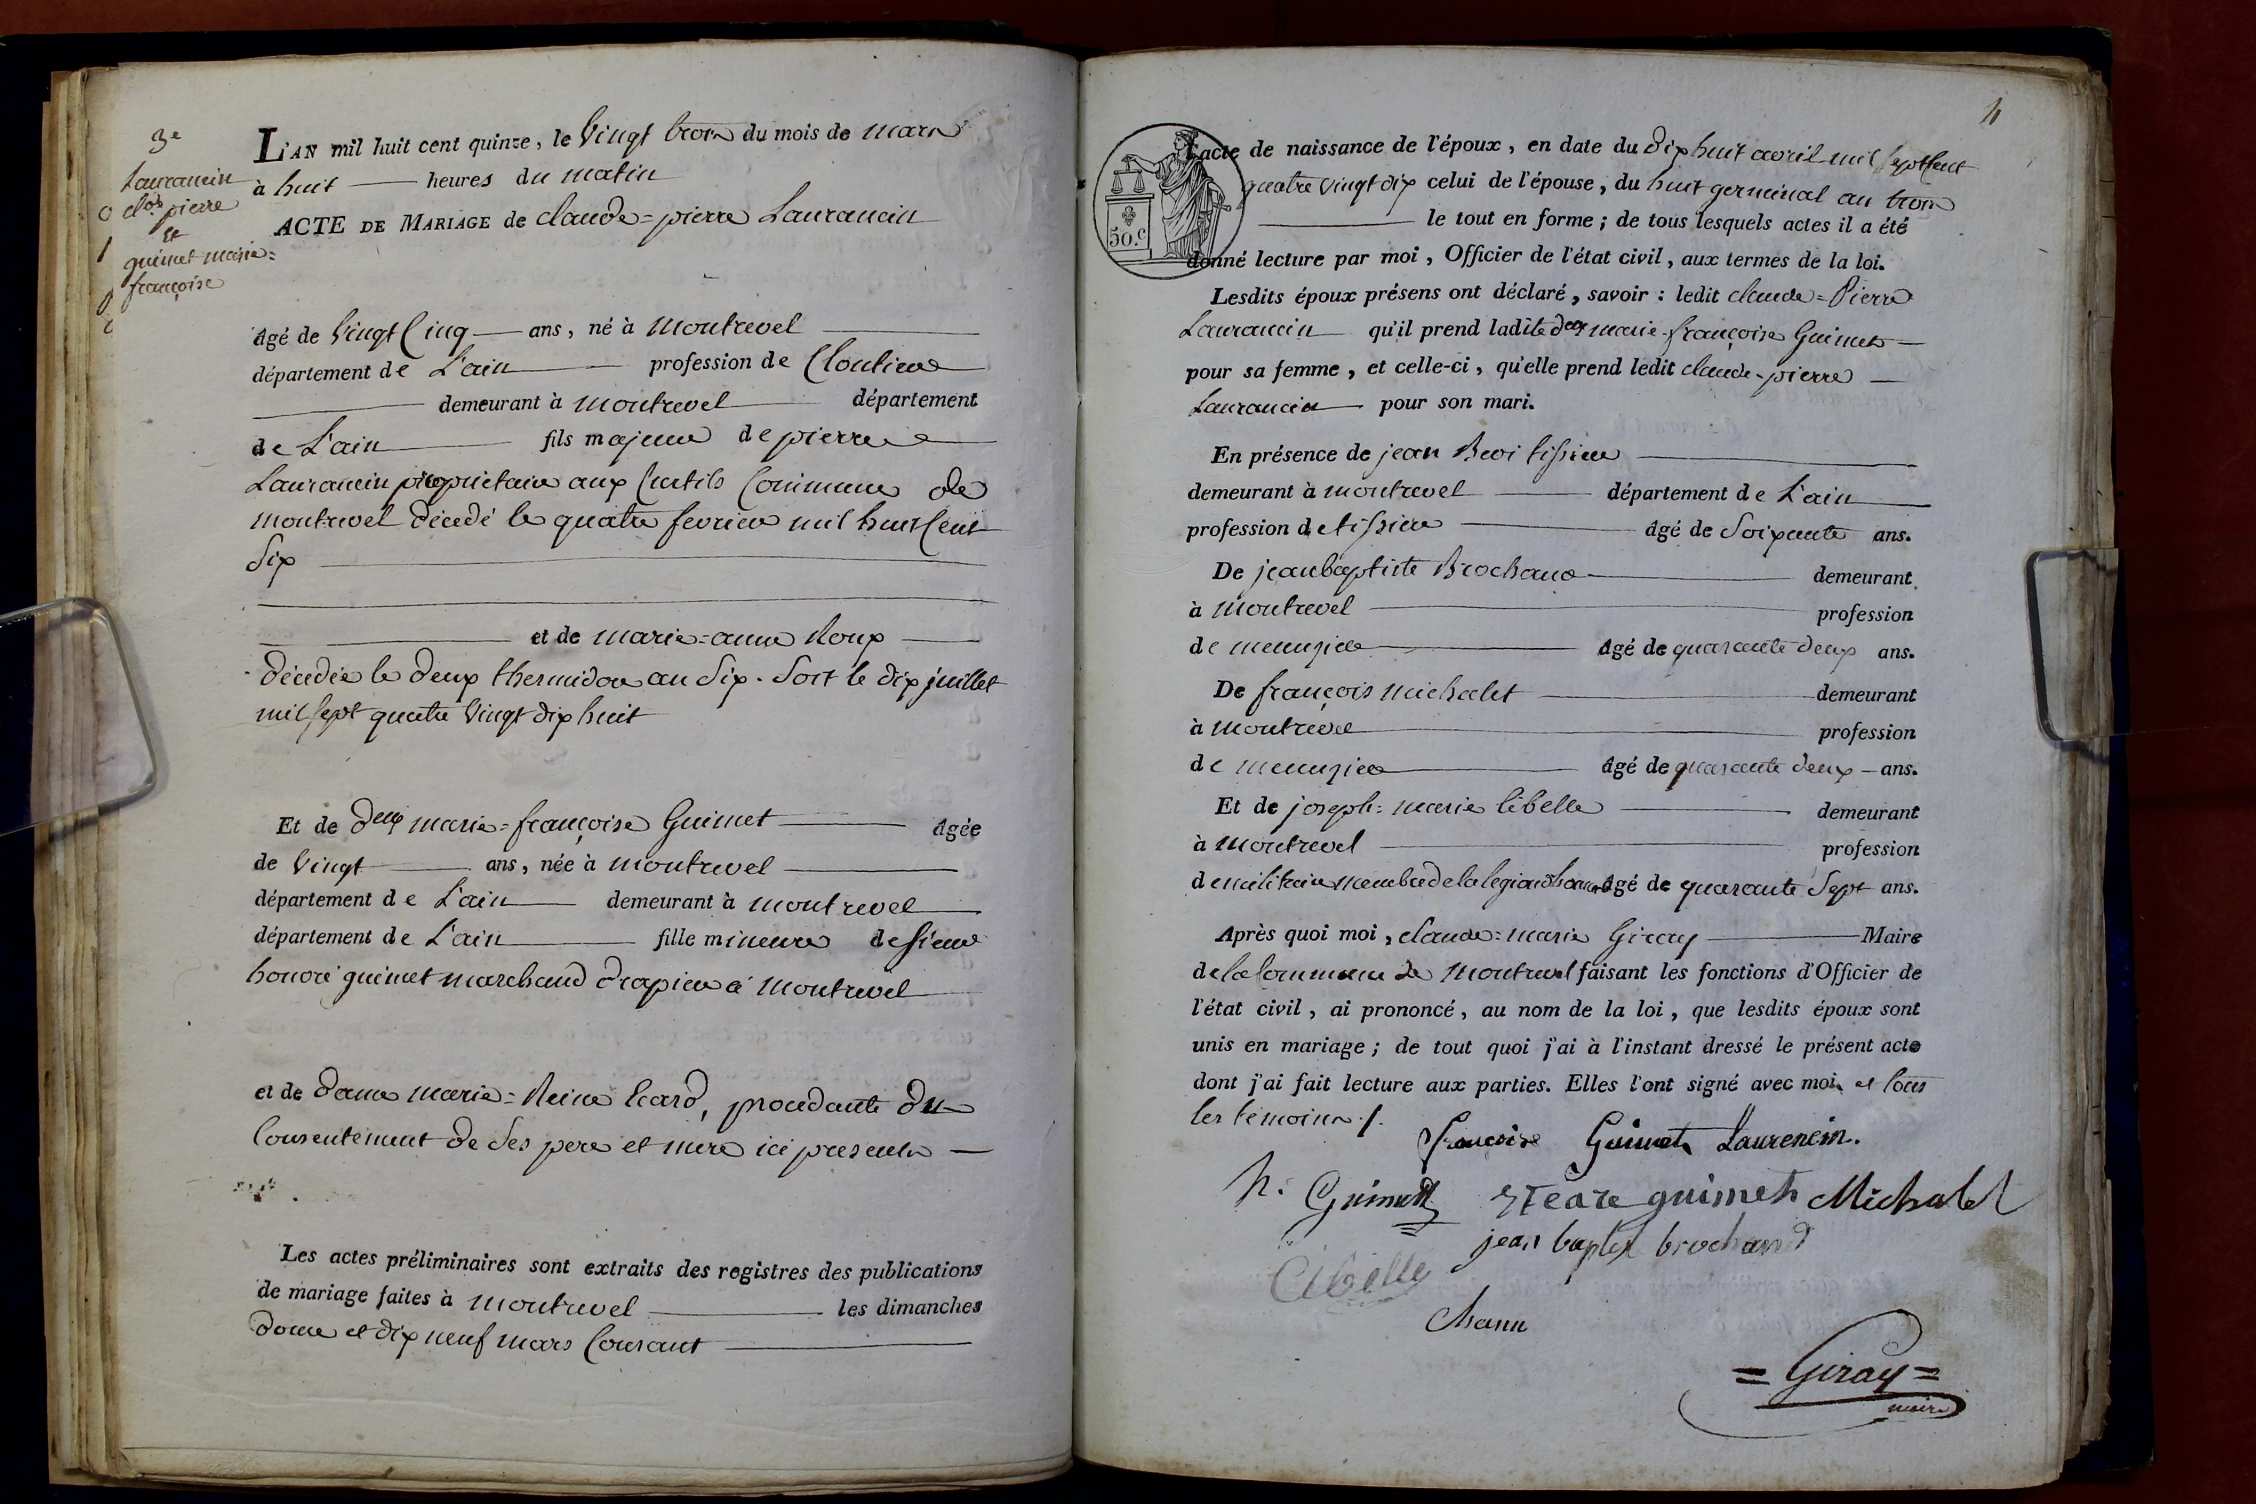 3e
Laurancin
clde pierre
et
guimet marie=
françoise
L'AN mil huit cent quinze, le Vingt trois du mois de mars
à huit heures du matin
ACTE DE MARIAGE de claude=pierre Laurancin
âgé de Vingt Cinq ans, né à montrevel
département de L'ain profession de Cloutier
demeurant à montrevel département
de L'ain fils majeur de pierre
Laurancin propriétaire aux Curtils Commune de
montrevel décédé le quatre fevrier mil huit Cent
Six
et de marie=anne Roux
décédée le deux thermidor an Six. Soit le dix juillet
mil sept quatre Vingt dix huit
Et de delle marie=françoise Guimet âgée
de Vingt ans, née à montrevel
département de L'ain demeurant à montrevel
département de L'ain fille mineure de sieur
honoré guimet marchand drapier à montrevel
et de dame marie=Reine Ecard, procedante du
Consentement de Ses pere et mere ici presents
Les actes préliminaires sont extraits des registres des publications
de mariage faites à montrevel les dimanches
douze et dix neuf mars Courant
4
50.c
L'acte de naissance de l'époux, en date du dix huit avril mil sept Cent
quatre Vingt dix celui de l'épouse, du huit germinal an trois
le tout en forme; de tous lesquels actes il a été
donné lecture par moi, Officier de l'état civil, aux termes de la loi.
Lesdits époux présens ont déclaré, savoir: ledit claude=Pierre
Laurancin qu'il prend ladite delle marie-françoise Guimet
pour sa femme, et celle-ci, qu'elle prend ledit claude-pierre
Laurancin pour son mari.
En présence de jean Revi tissier
demeurant à montrevel département de L'ain
profession de tissier âgé de Soixante ans.
De jean baptiste Brochand demeurant
à montrevel profession
de menuzier âgé de quarante deux ans.
De françois michalet demeurant
à montrevel profession
de menuzier âgé de quarante deux ans.
Et de joseph=marie libelle demeurant
à montrevel profession
de militaire membre de la legion d'honneur âgé de quarante Sept ans.
Après quoi moi, claude=marie Giray Maire
de la Commune de montrevel faisant les fonctions d'Officier de
l'état civil, ai prononcé, au nom de la loi, que lesdits époux sont
unis en mariage; de tout quoi j'ai à l'instant dressé le présent acte
dont j'ai fait lecture aux parties. Elles l'ont signé avec moi et tous
les témoins /.
françoise Guimet Laurencin.
h. Guimet guimet Michalet
jean baptist brochand
Libelle
=Giray=
maire